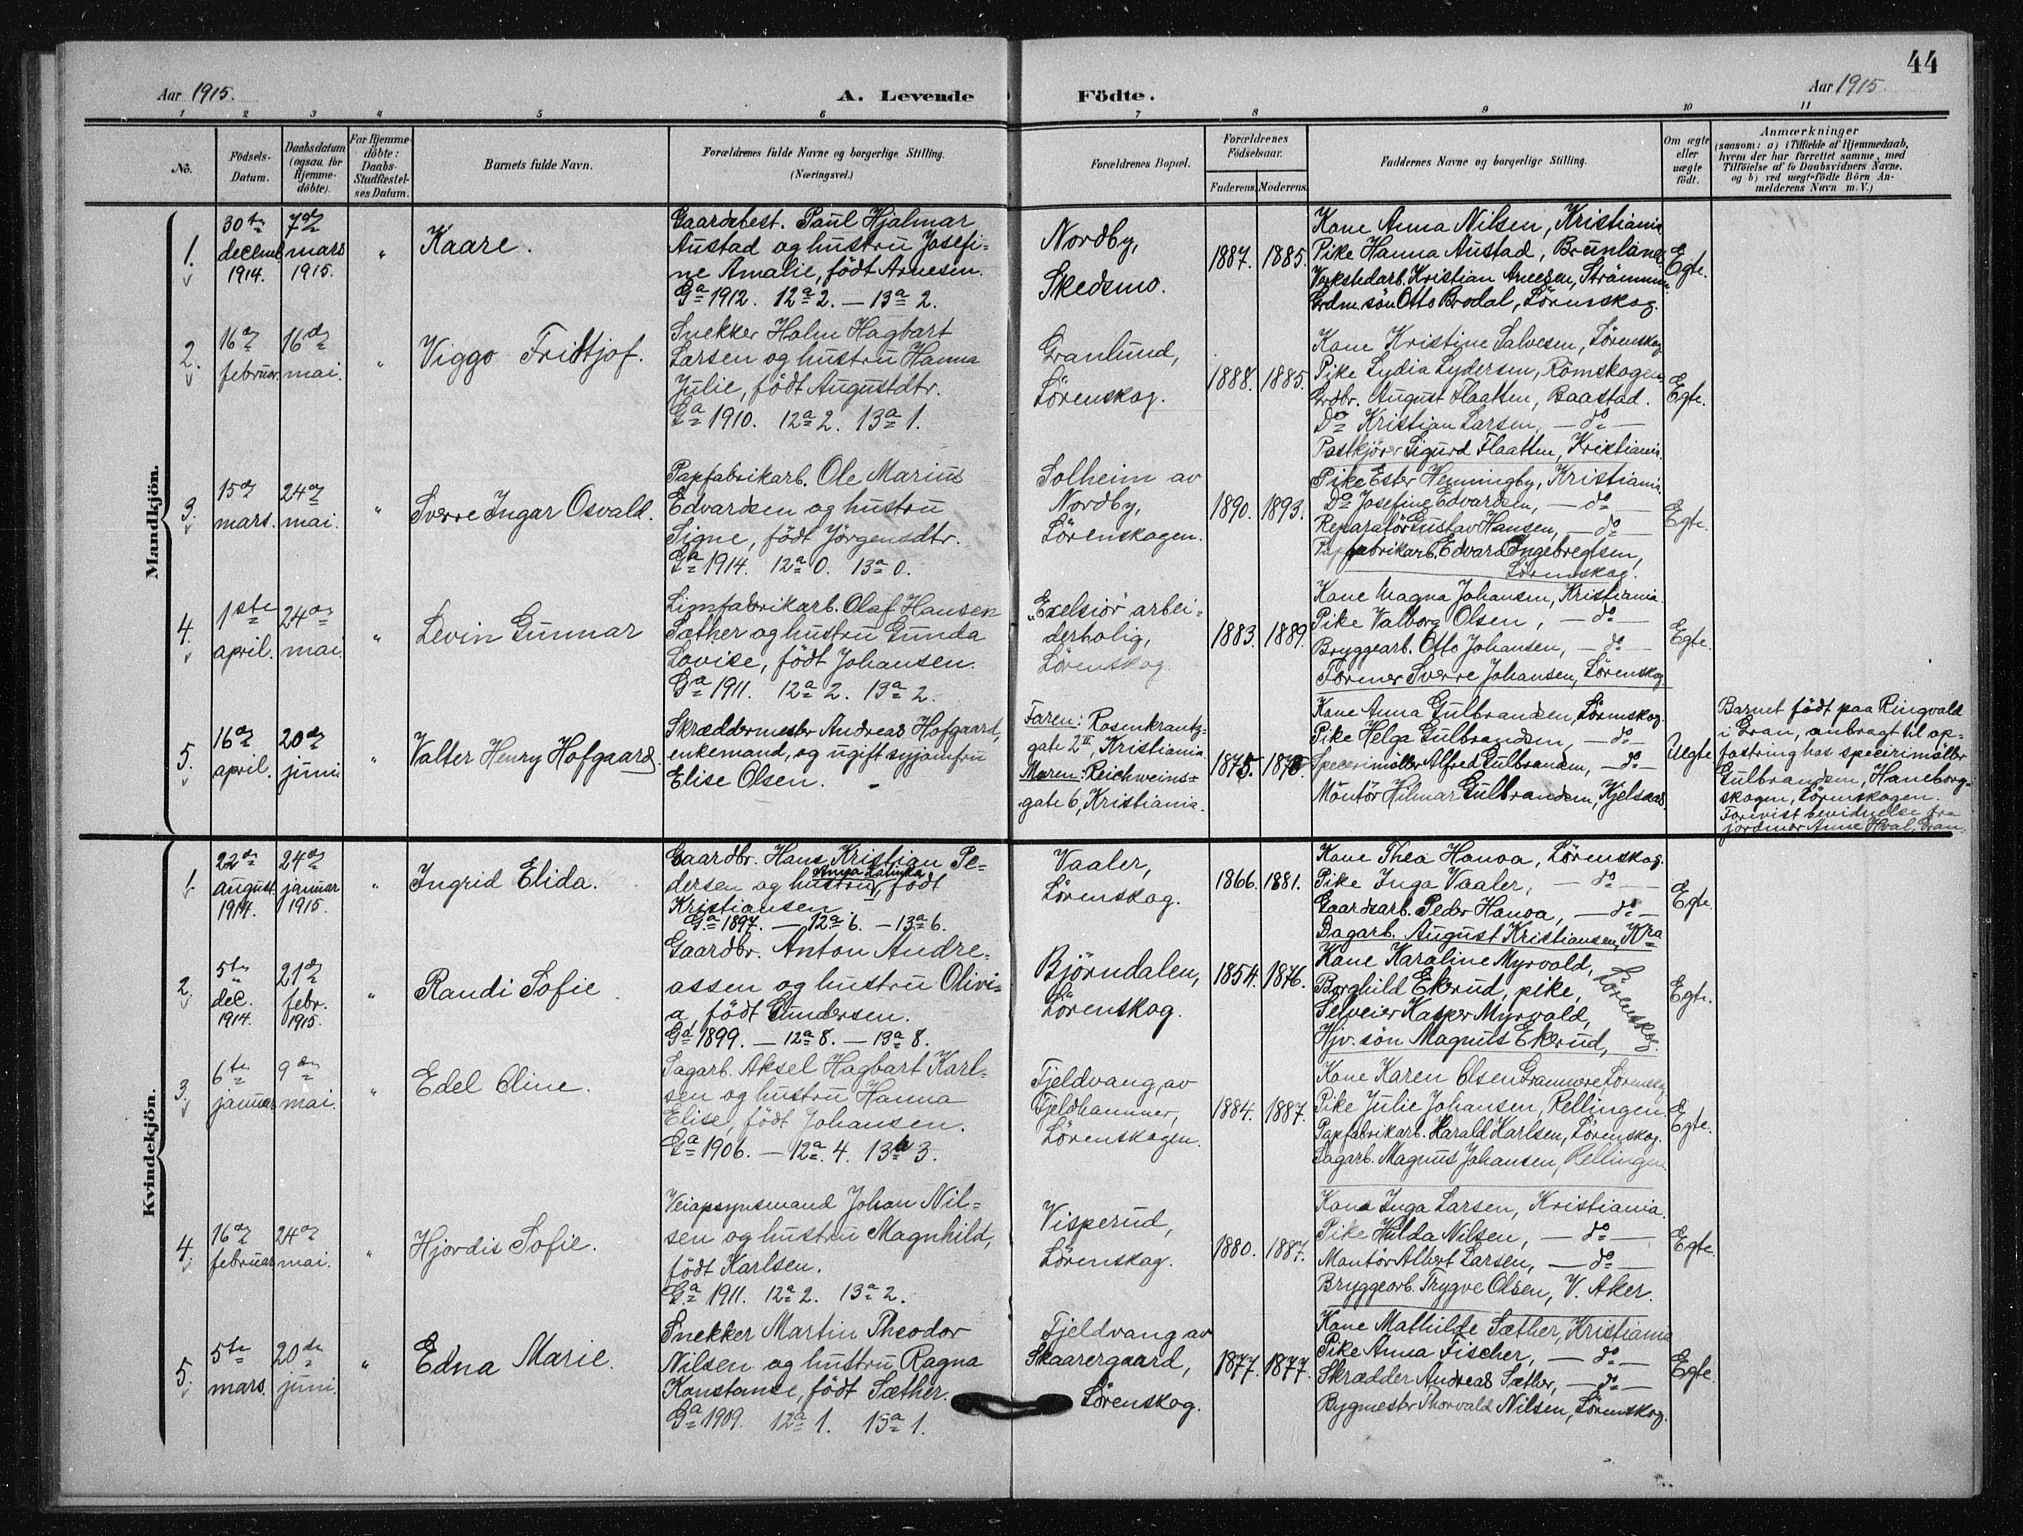 44
Aar 1915.
A. Levende Födte.
Aar 1915.
1 2 3 4 5 6 7 8 9 10 11
No.
Födsels-
Datum.
Daabsdatum
(ogsaa for
Hjemme-
döbte).
For Hjemme-
döbte:
Daabs-
Stadfæstel-
ses Datum.
Barnets fulde Navn.
Forældrenes fulde Navne og borgerlige Stilling.
(Næringsvei.)
Forældrenes Bopæl.
Forældrenes
Födselsaar.
Faderens. Moderens.
Faddernes Navne og borgerlige Stilling.
Om ægte
eller
uægte
födt.
Anmærkninger
(saasom: a) i Tilfælde af Hjemmedaab,
hvem der har forrettet samme, med
Tilföielse af to Daabsvidners Navne,
og b) ved uægte födte Börn An-
melderens Navn m. V.)
Mandkjön.
1.
30te
decemb.
1914.
7de
mars
1915.
"
Kaare.
Gaardsbest. Paul Hjalmar
Austad og hustru Josefi-
ne Amalie, född Arnesen.
Ga 1912. 12a 2. — 13a 2.
Nordby,
Skedsmo.
1887. 1885.
Kone Anna Nilsen, Kristiania
Pike Hanna Austad, Brunlanes
Verkstedarb. Kristian Arnesen, Strömmen
Grdm. sön Otto Brodal, Lörenskog.
Egte.
2.
16de
februar.
16de
mai.
"
Viggo Fridtjof.
Snekker Holm Hagbart
Larsen og hustru Hanna
Julie, född Augustdtr.
Ga 1910. 12a 2. 13a 1.
Granlund,
Lörenskog.
1888. 1885.
Kone Kristine Salvesen, Lörenskog
Pike Lydia Lydersen, Römskogen
Grdbr. August Flaatten, Baastad.
Do Kristian Larsen, — do —
Postkjörer Sigurd Flaatten, Kristiania.
Egte.
3.
15de
mars.
24de
mai.
"
Sverre Ingar Osvald.
Papfabrikarb. Ole Marius
Edvardsen og hustru
Signe, född Jörgensdtr.
Ga 1914. 12a 0. 13a 0.
Solheim av
Nordby,
Lörenskogen.
1890. 1893.
Pike Ester Hemmingby, Kristiania.
Do Josefine Edvardsen, — do —
Reparatör Gustav Hansen, — do —
Papfabrikarb. Edvard Ingebregtsen,
Lörenskog.
Egte.
4.
1ste
april.
24de
mai.
"
Levin Gunnar
Limfabrikarb. Olaf Hansen
Sæther og hustru Gunda
Lovise, född Johansen.
Ga 1911. 12a 2. 13a 2.
„Exelsiör" arbei-
derbolig,
Lörenskog.
1883. 1889.
Kone Magna Johansen, Kristiania.
Pike Valborg Olsen, — do —
Bryggearb. Otto Johansen, — do —
Former Sverre Johansen, Lörenskog.
Egte.
5.
16de
april.
20de
juni
"
Valter Henry Hofgaard
Skræddermester Andreas Hofgaard,
enkemand, og ugift syjomfru
Elise Olsen.
Faren: Rosenkrantz-
gate 2II, Kristiania
Moren: Reichweins=
gate 6, Kristiania.
1875. 1878.
Kone Anna Gulbrandsen, Lörenskog.
Pike Helga Gulbrandsen, — do —
Specerimöller Alfred Gulbrandsen, — do —
Möntör Hilmar Gulbrandsen, Kjelsaas
Uegte
Barnet född paa Ringvold
i Gran, anbragt til op-
fostring hos specerimöller
Gulbrandsen, Haneborg-
skogen, Lörenskogen.
Forevist bevidnelse fra
jordmor Anne Hval, Gran.
Kvindekjön.
1.
22de
august.
1914.
24de
januar
1915.
"
Ingrid Elida.
Gaardbr. Hans Kristian Pe-
dersen og hustru Anna Kalinka, född
Kristiansen.
Ga 1897. — 12a 6. — 13a 6.
Vaaler,
Lörenskog.
1866. 1881.
Kone Thea Hanoa, Lörenskog.
Pike Inga Vaaler, — do —
Gaardsarb. Peder Hanoa, — do —
Dagarb. August Kristiansen, Kra
Egte.
2.
5te
dec.
1914.
21de
febr.
1915.
"
Randi Sofie.
Gaardbr. Anton Andre-
assen og hustru Olivi-
a, född Gundersen.
Ga 1899. — 12a 8. — 13a 8.
Björndalen,
Lörenskog.
1854. 1876.
Kone Karoline Myrvold,
Borghild Ekerud, pike,
Selveier Kasper Myrvold,
Hjv. sön Magnus Ekerud,
Lörenskog.
Egte.
3.
6te
januar
9de
mai.
"
Edel Oline.
Sagarb. Aksel Hagbart Karl-
sen og hustru Hanna
Elise, född Johansen.
Ga 1906. — 12a 4. 13a 3.
Fjeldvang av
Fjeldhammer,
Lörenskogen.
1884. 1887.
Kone Karen Olsen Grannere Lörenskog
Pike Julie Johansen, Rellingen.
Papfabrikarb. Harald Karlsen, Lörenskog.
Sagarb. Magnus Johansen, Rellingen.
Egte.
4.
16de
februar
24de
mai.
"
Hjordis Sofie.
Veiopsynsmand Johan Nil-
sen og hustru Magnhild,
född Karlsen.
Ga 1911. 12a 2. 13a 2.
Visperud,
Lörenskog.
1880. 1887.
Kone Inga Larsen, Kristiania.
Pike Hilda Nilsen, — do —
Montör Albert Larsen, — do —
Bryggearb. Trygve Olsen, V. Aker.
Egte.
5.
5te
mars.
20de
juni.
"
Edna Marie.
Snekker Martin Theodor
Nilsen og hustru Ragna
Konstanse, född Sæther.
Ga 1909. 12a 1. 13a 1.
Fjeldvang av
Skaarergaard,
Lörenskog.
1877. 1877.
Kone Mathilde Sæther, Kristiania
Pike Anna Fischer, — do —
Skrædder Andreas Sæther, — do —
Bygmester Thorvald Nilsen, Lörenskog.
Egte.